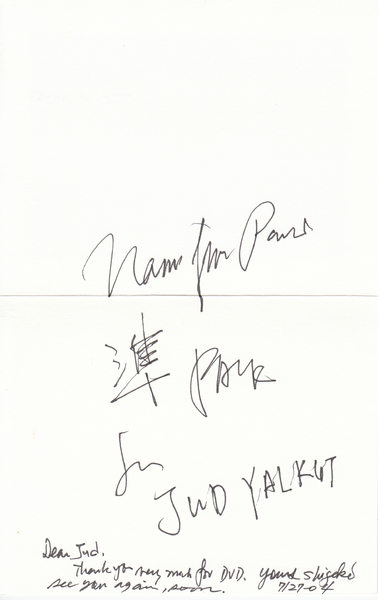 Nam June Paik
準 PAIK
for
JUD YALKUT
Dear Jud.
Thank you very much for DVD. yours Shigeko
see you again, soon. 7/27-04